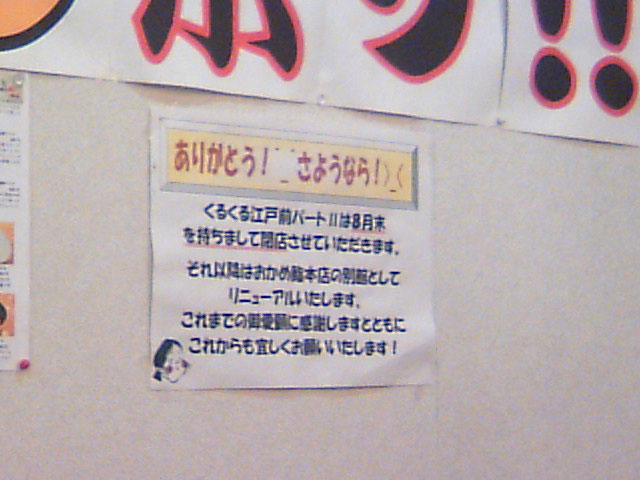 ポッ!!
ありがとう！^_^さようなら！>_<
くるくる江戸前パートIIは8月末
を持ちまして閉店させていただきます。
それ以降はおかめ鮨本店の別館として
リニューアルいたします。
これまでの御愛顧に感謝しますとともに
これからも宜しくお願いいたします！